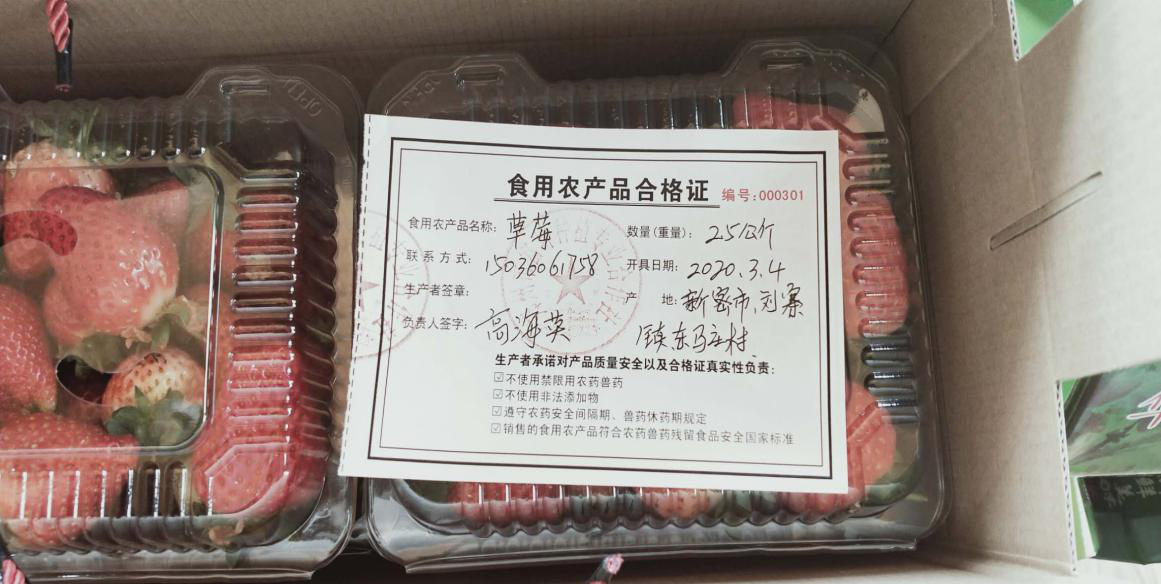 食用农产品合格证 编号:000301
食用农产品名称: 草莓 数量(重量): 2.5公斤
联系方式: 15036061758 开具日期: 2020.3.4
生产者签章: 产地: 新密市刘寨
负责人签字: 高海英 镇东马庄村
生产者承诺对产品质量安全以及合格证真实性负责:
☑不使用禁限用农药兽药
☑不使用非法添加物
☑遵守农药安全间隔期、兽药休药期规定
☑销售的食用农产品符合农药兽药残留食品安全国家标准